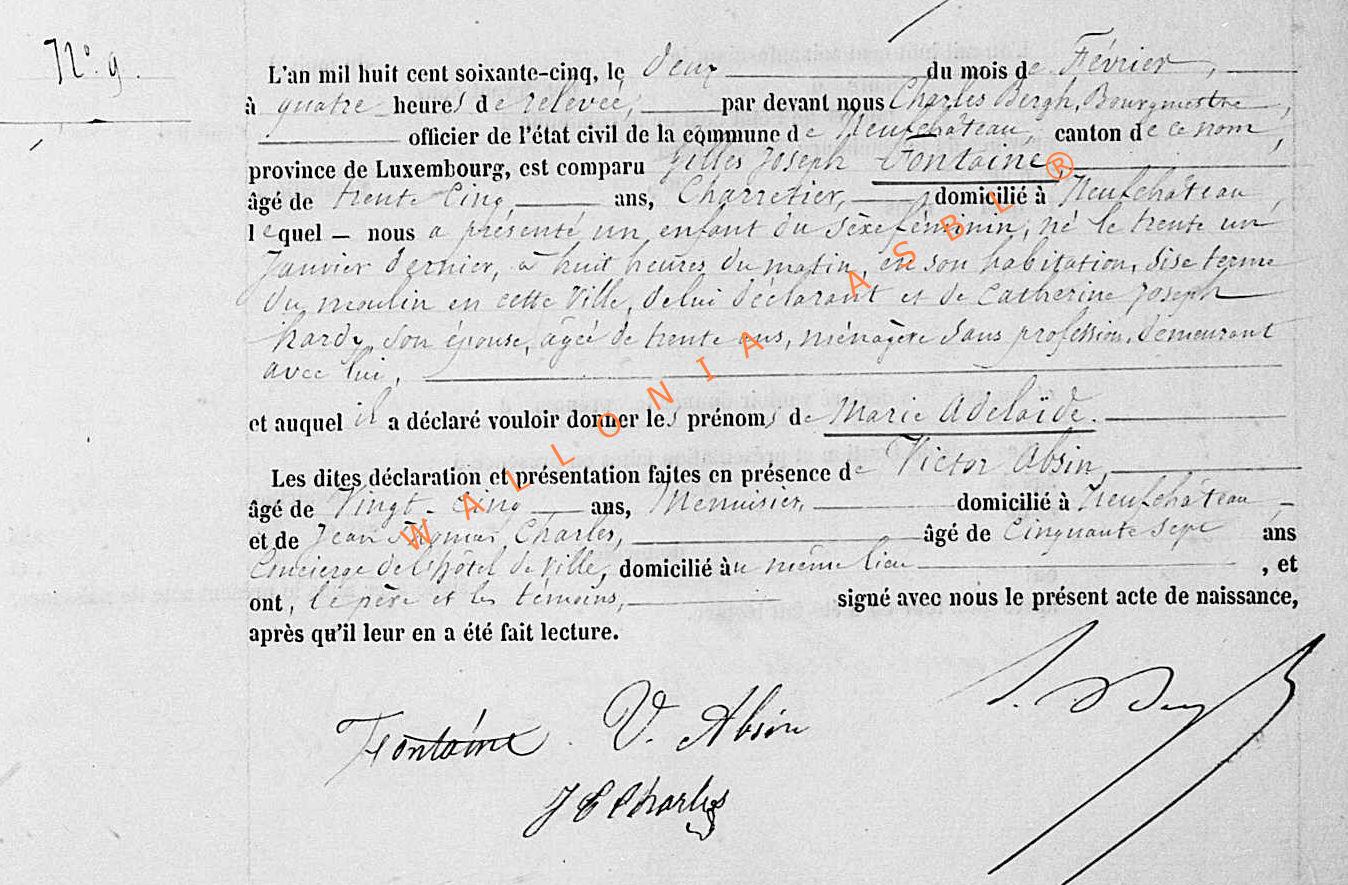 N° 9.
L'an mil huit cent soixante-cinq, le deux du mois de Février,
à quatre heures de relevée, par devant nous Charles Bergh, Bourgmestre,
officier de l'état civil de la commune de Neufchâteau, canton de ce nom,
province de Luxembourg, est comparu Gilles Joseph Fontaine,
âgé de trente cinq ans, Charretier, domicilié à Neufchâteau,
lequel – nous a présenté un enfant du sèxe féminin, né le trente un
Janvier dernier, à huit heures du matin, en son habitation, sise terme
du moulin en cette Ville, de lui déclarant et de Catherine Joseph
hardy, son épouse, âgée de trente ans, ménagère sans profession, demeurant
avec lui,
et auquel il a déclaré vouloir donner les prénoms de Marie Adelaïde.
Les dites déclaration et présentation faites en présence de Victor Absin,
âgé de Vingt-cinq ans, Menuisier, domicilié à Neufchâteau
et de Jean Charles, âgé de Cinquante sept ans
Concierge de l'hôtel de Ville, domicilié au même lieu, et
ont, le père et les témoins, signé avec nous le présent acte de naissance,
après qu'il leur en a été fait lecture.
Fontaine. V. Absin
J E Charles
WALLONIA ASBL ®